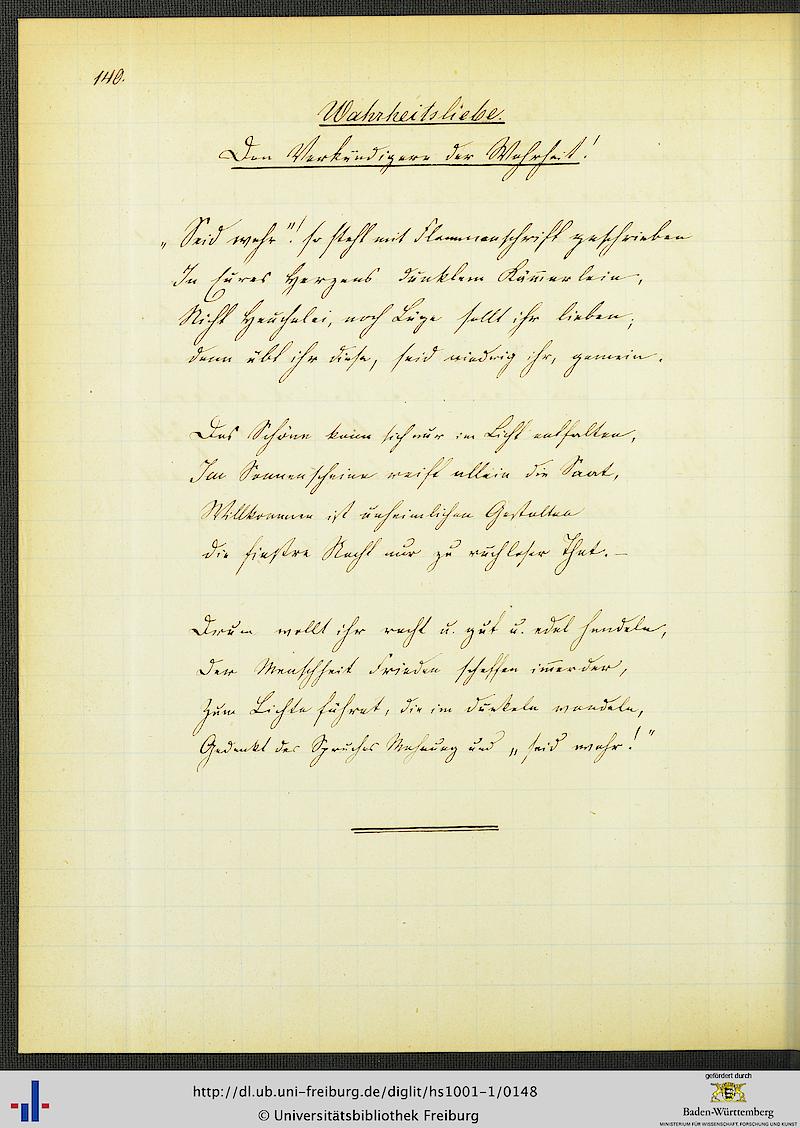 140.
Wahrheitsliebe.
Den Verkündigern der Wahrheit!
„Seid wahr"! so steht mit Flammenschrift geschrieben
In Eures Herzens dunklem Kämmerlein,
Nicht Heuchelei, noch Lüge sollt ihr lieben;
denn übt ihr diese, seid niedrig ihr, gemein.
Das Schöne kann sich nur im Licht entfalten,
Im Sonnenscheine reift allein die Saat,
Willkommen ist unheimlichen Gestalten
die finstre Nacht nur zu ruchloser That. –
Drum wollt ihr recht u. gut u. edel handeln,
Der Menschheit Frieden schaffen immerdar,
Zum Lichte führet, die im Dunkeln wandeln,
Gedenkt des Spruches Mahnung und „seid wahr!"
http://dl.ub.uni-freiburg.de/diglit/hs1001-1/0148
© Universitätsbibliothek Freiburg
gefördert durch
Baden-Württemberg
MINISTERIUM FÜR WISSENSCHAFT, FORSCHUNG UND KUNST